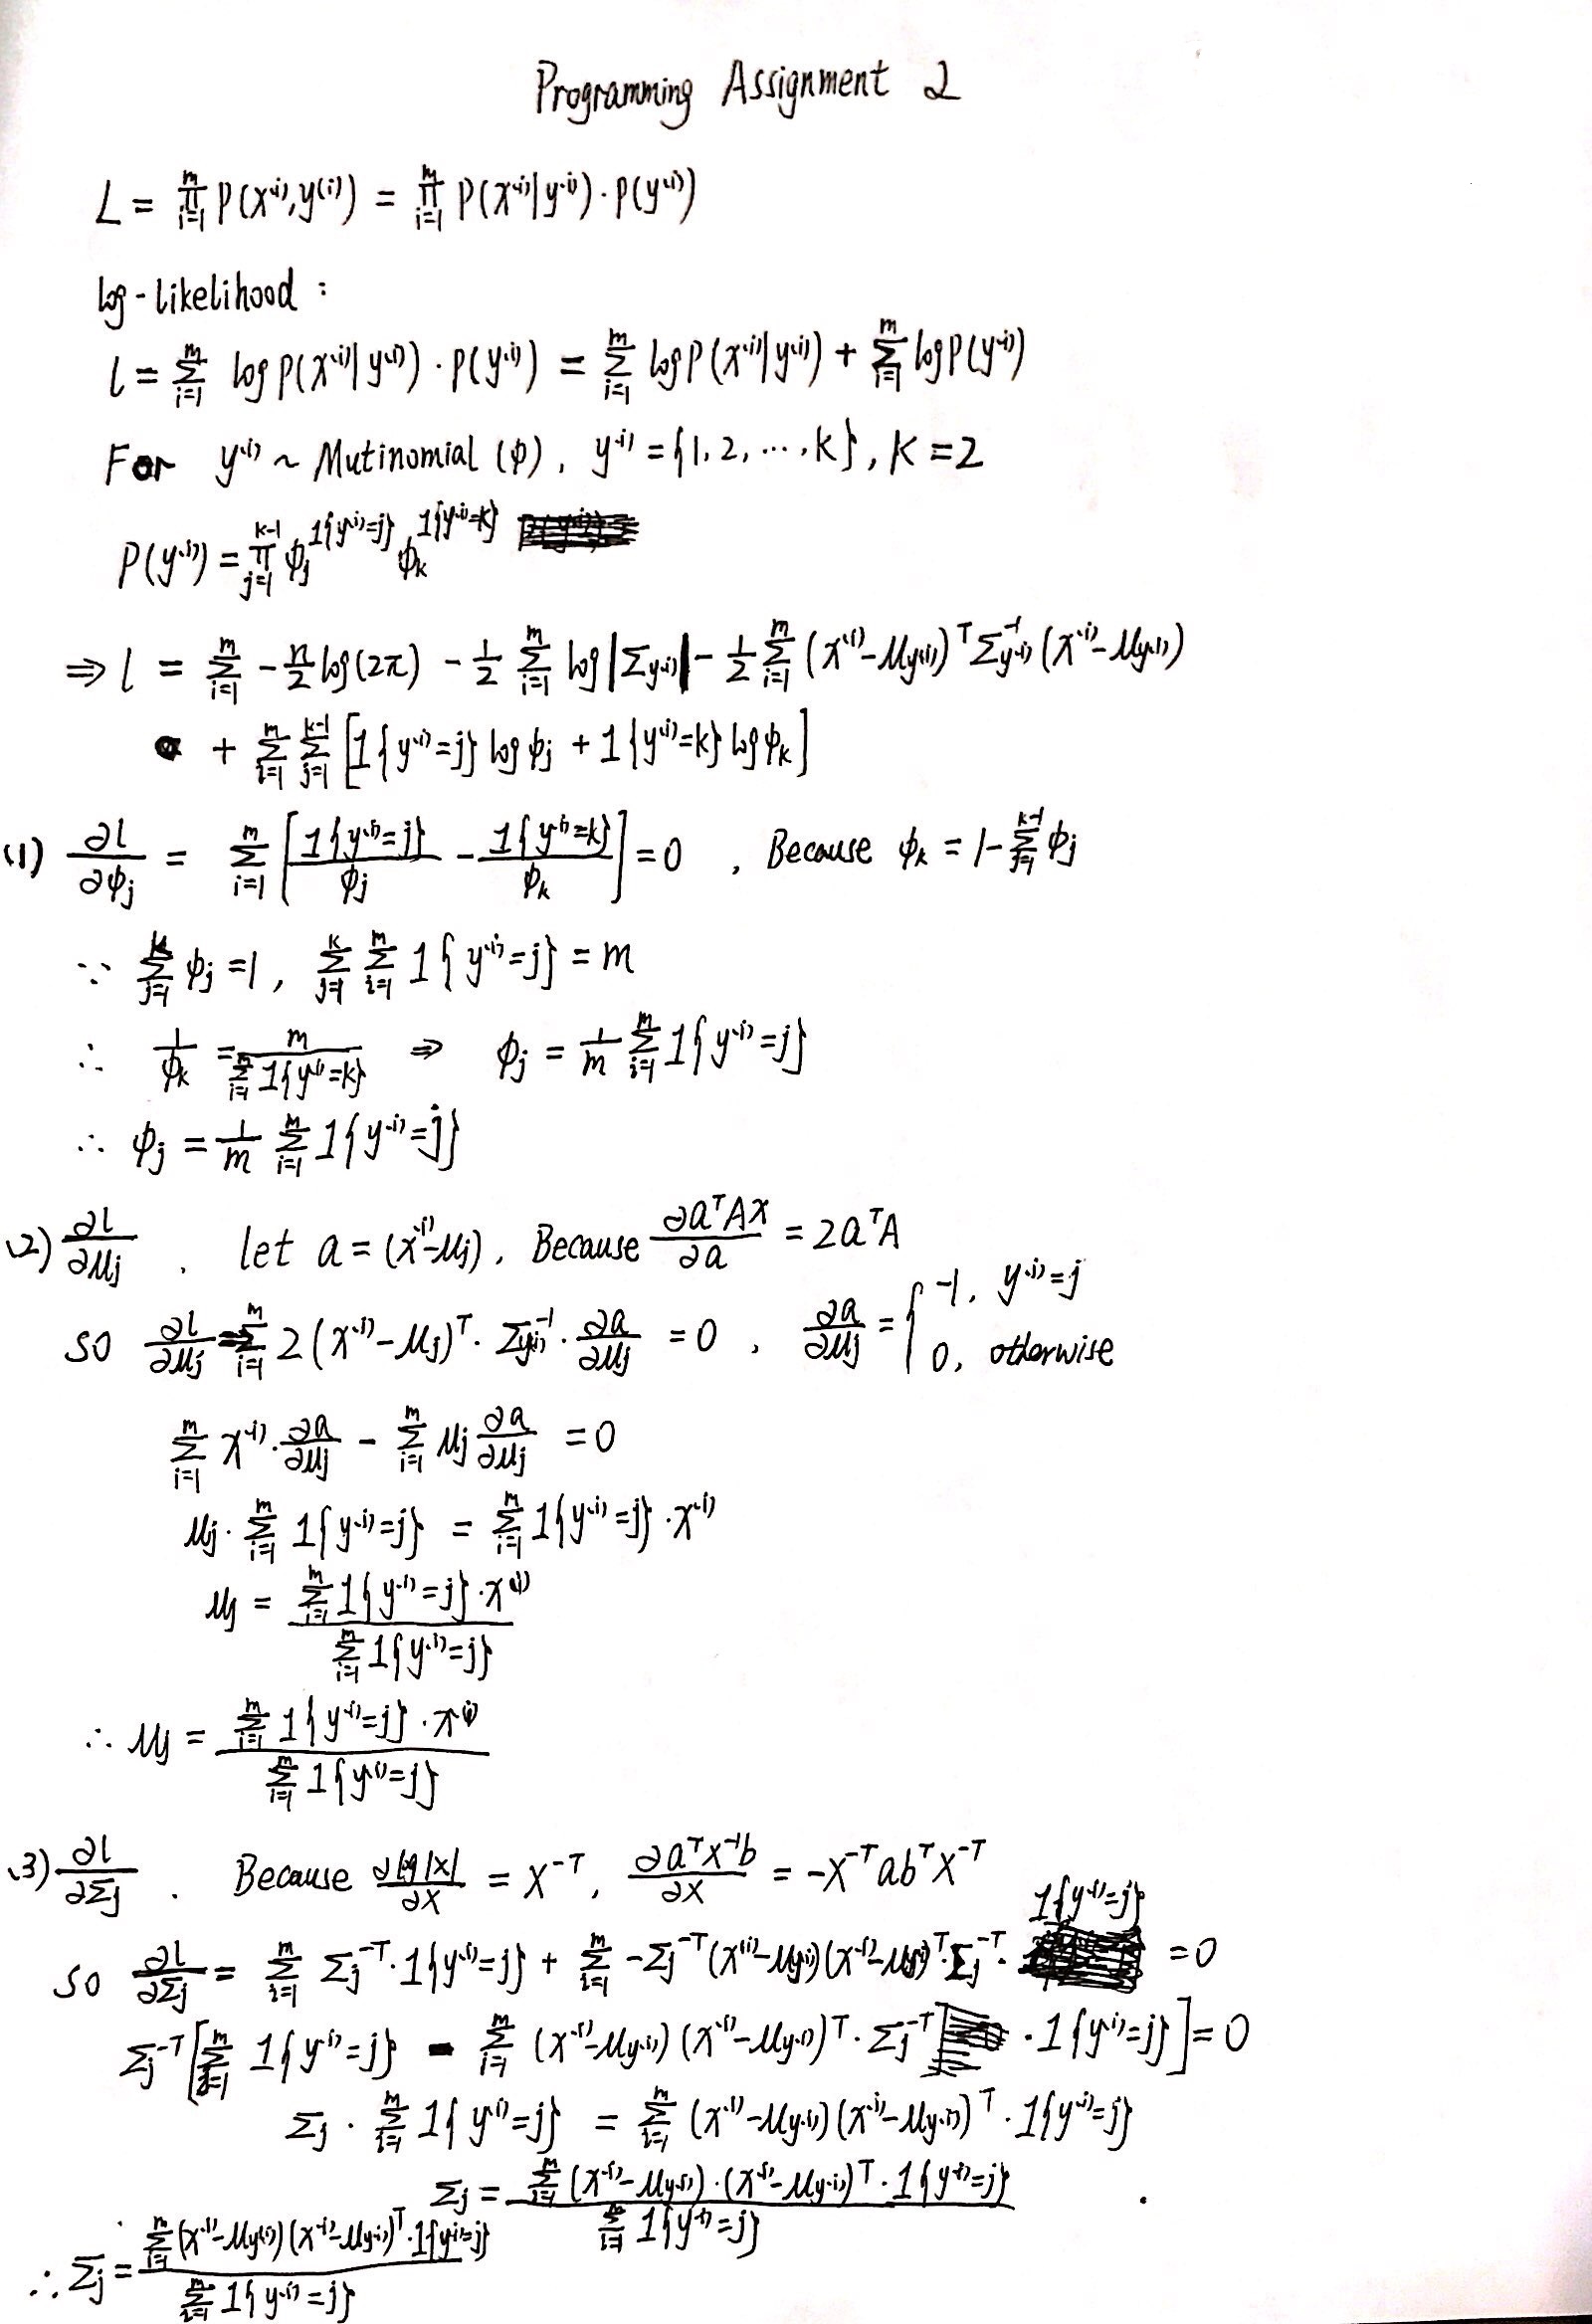 Programming Assignment 2
L = ∏_{i=1}^{m} P(x^{(i)}, y^{(i)}) = ∏_{i=1}^{m} P(x^{(i)}|y^{(i)}) · P(y^{(i)})
log-likelihood :
l = Σ_{i=1}^{m} log P(x^{(i)}|y^{(i)}) · P(y^{(i)}) = Σ_{i=1}^{m} log P(x^{(i)}|y^{(i)}) + Σ_{i=1}^{m} log P(y^{(i)})
For y^{(i)} ~ Mutinomial (φ), y^{(i)} = {1, 2, ···, k}, K = 2
P(y^{(i)}) = ∏_{j=1}^{k-1} φ_j^{1{y^{(i)}=j}} φ_k^{1{y^{(i)}=k}}
⇒ l = Σ_{i=1}^{m} -n/2 log(2π) - 1/2 Σ_{i=1}^{m} log|Σ_{y^{(i)}}| - 1/2 Σ_{i=1}^{m} (x^{(i)} - μ_{y^{(i)}})^T Σ_{y^{(i)}}^{-1} (x^{(i)} - μ_{y^{(i)}})
+ Σ_{i=1}^{m} Σ_{j=1}^{k-1} [1{y^{(i)}=j} log φ_j + 1{y^{(i)}=k} log φ_k]
(1) ∂l/∂φ_j = Σ_{i=1}^{m} [1{y^{(i)}=j}/φ_j - 1{y^{(i)}=k}/φ_k] = 0 , Because φ_k = 1 - Σ_{j=1}^{k-1} φ_j
∵ Σ_{j=1}^{k} φ_j = 1, Σ_{j=1}^{k} Σ_{i=1}^{m} 1{y^{(i)}=j} = m
∴ 1/φ_k = m/Σ_{i=1}^{m} 1{y^{(i)}=k} ⇒ φ_j = 1/m Σ_{i=1}^{m} 1{y^{(i)}=j}
∴ φ_j = 1/m Σ_{i=1}^{m} 1{y^{(i)}=j}
(2) ∂l/∂μ_j . let a = (x^{(i)} - μ_j), Because ∂a^T A x/∂a = 2a^T A
so ∂l/∂μ_j = Σ_{i=1}^{m} 2(x^{(i)} - μ_j)^T · Σ_{y^{(i)}}^{-1} · ∂a/∂μ_j = 0 , ∂a/∂μ_j = { -1, y^{(i)}=j
0, otherwise
Σ_{i=1}^{m} x^{(i)} · ∂a/∂μ_j - Σ_{i=1}^{m} μ_j ∂a/∂μ_j = 0
μ_j · Σ_{i=1}^{m} 1{y^{(i)}=j} = Σ_{i=1}^{m} 1{y^{(i)}=j} · x^{(i)}
μ_j = Σ_{i=1}^{m} 1{y^{(i)}=j} · x^{(i)} / Σ_{i=1}^{m} 1{y^{(i)}=j}
∴ μ_j = Σ_{i=1}^{m} 1{y^{(i)}=j} · x^{(i)} / Σ_{i=1}^{m} 1{y^{(i)}=j}
(3) ∂l/∂Σ_j . Because ∂log|X|/∂X = X^{-T}, ∂a^T X^{-1} b/∂X = -X^{-T} a b^T X^{-T}
so ∂l/∂Σ_j = Σ_{i=1}^{m} Σ_j^{-T} · 1{y^{(i)}=j} + Σ_{i=1}^{m} -Σ_j^{-T} (x^{(i)} - μ_{y^{(i)}})(x^{(i)} - μ_{y^{(i)}})^T · Σ_j^{-T} · 1{y^{(i)}=j} = 0
Σ_j^{-T} [Σ_{i=1}^{m} 1{y^{(i)}=j} - Σ_{i=1}^{m} (x^{(i)} - μ_{y^{(i)}})(x^{(i)} - μ_{y^{(i)}})^T · Σ_j^{-T} · 1{y^{(i)}=j}] = 0
Σ_j · Σ_{i=1}^{m} 1{y^{(i)}=j} = Σ_{i=1}^{m} (x^{(i)} - μ_{y^{(i)}})(x^{(i)} - μ_{y^{(i)}})^T · 1{y^{(i)}=j}
Σ_j = Σ_{i=1}^{m} (x^{(i)} - μ_{y^{(i)}}) · (x^{(i)} - μ_{y^{(i)}})^T · 1{y^{(i)}=j} / Σ_{i=1}^{m} 1{y^{(i)}=j}
∴ Σ_j = Σ_{i=1}^{m} (x^{(i)} - μ_{y^{(i)}})(x^{(i)} - μ_{y^{(i)}})^T · 1{y^{(i)}=j} / Σ_{i=1}^{m} 1{y^{(i)}=j}